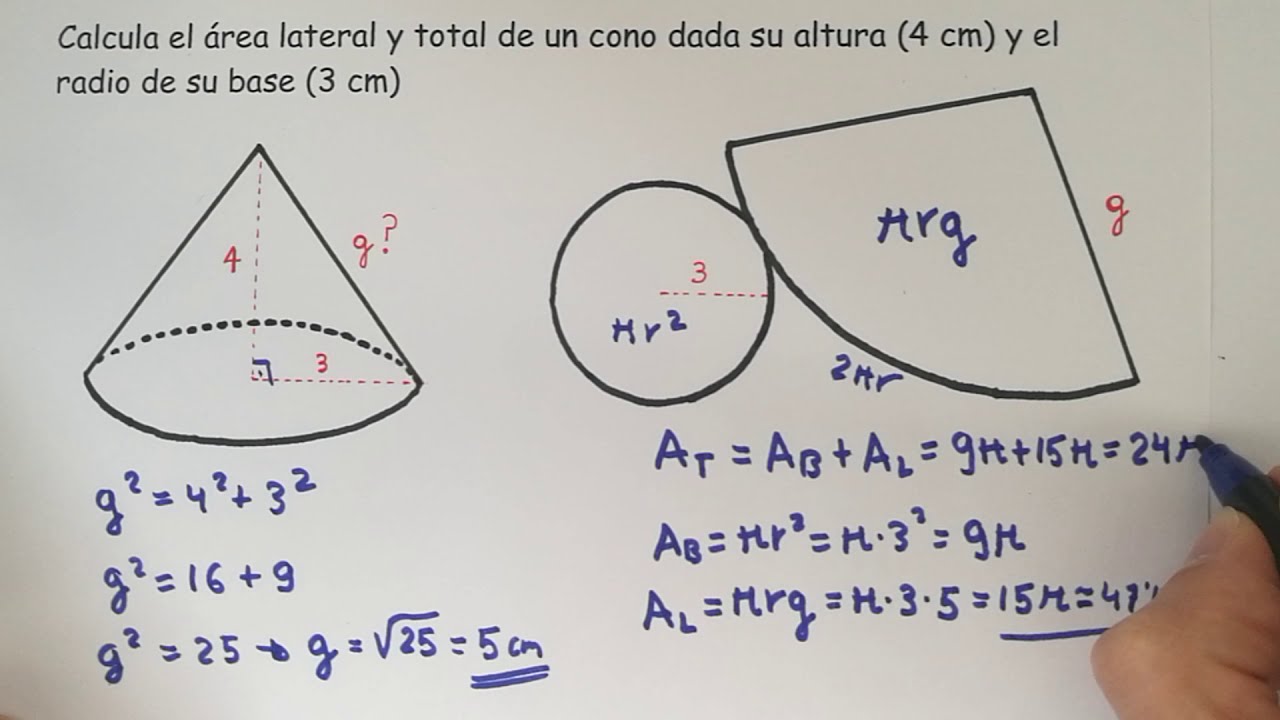 Calcula el área lateral y total de un cono dada su altura (4 cm) y el
radio de su base (3 cm)
4
g?
3
3
πr²
πrg
g
2πr
g² = 4² + 3²
g² = 16 + 9
g² = 25 → g = √25 = 5 cm
A_T = A_B + A_L = 9π + 15π = 24π
A_B = πr² = π·3² = 9π
A_L = πrg = π·3·5 = 15π = 47'